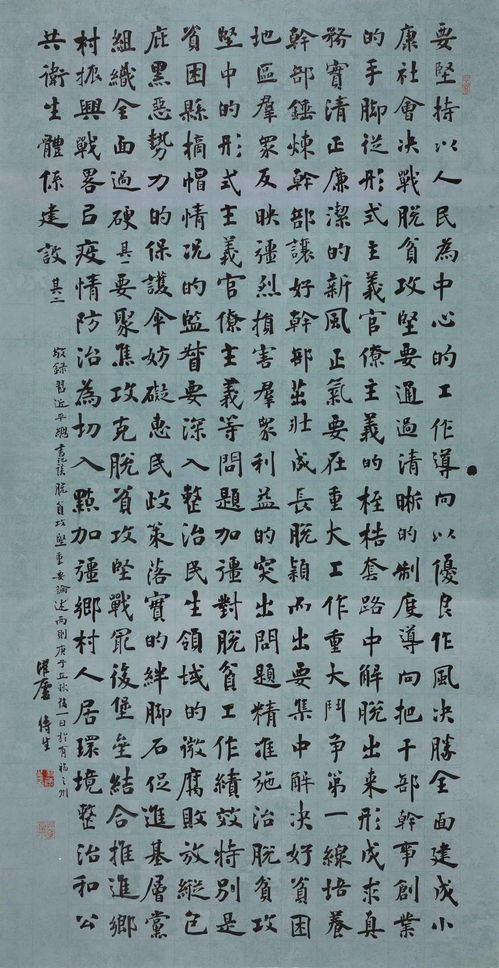 要堅持以人民為中心的工作導向以優良作風决勝全面建成小
康社會决戰脱貧攻堅要通過清晰的制度導向把干部幹事創業
的手脚從形式主義官僚主義的桎梏套路中解脱出来形成求真
務實清正廉潔的新風正氣要在重大工作重大鬥争第一線培養
幹部錘煉幹部讓好幹部茁壯成長脱穎而出要集中解决好貧困
地區羣眾反映强烈損害羣眾利益的突出問題精准施治脱貧攻
堅中的形式主義官僚主義等問題加疆對脱貧工作績效特别是
貧困縣摘帽情况的監督要深入整治民生領域的微腐敗放縱包
庇黑惡勢力的保護傘妨礙惠民政策落實的絆脚石促進基層黨
組織全面過硬其二要聚焦攻克脱貧攻堅戰最後堡壘結合推進鄉
村振興戰畧㠯疫情防治為切入點加疆鄉村人居環境整治和公
共衛生體係建設 其二
敬録習近平總書記談脱貧攻堅重要論述兩則庚子立秋後一日於有福之州